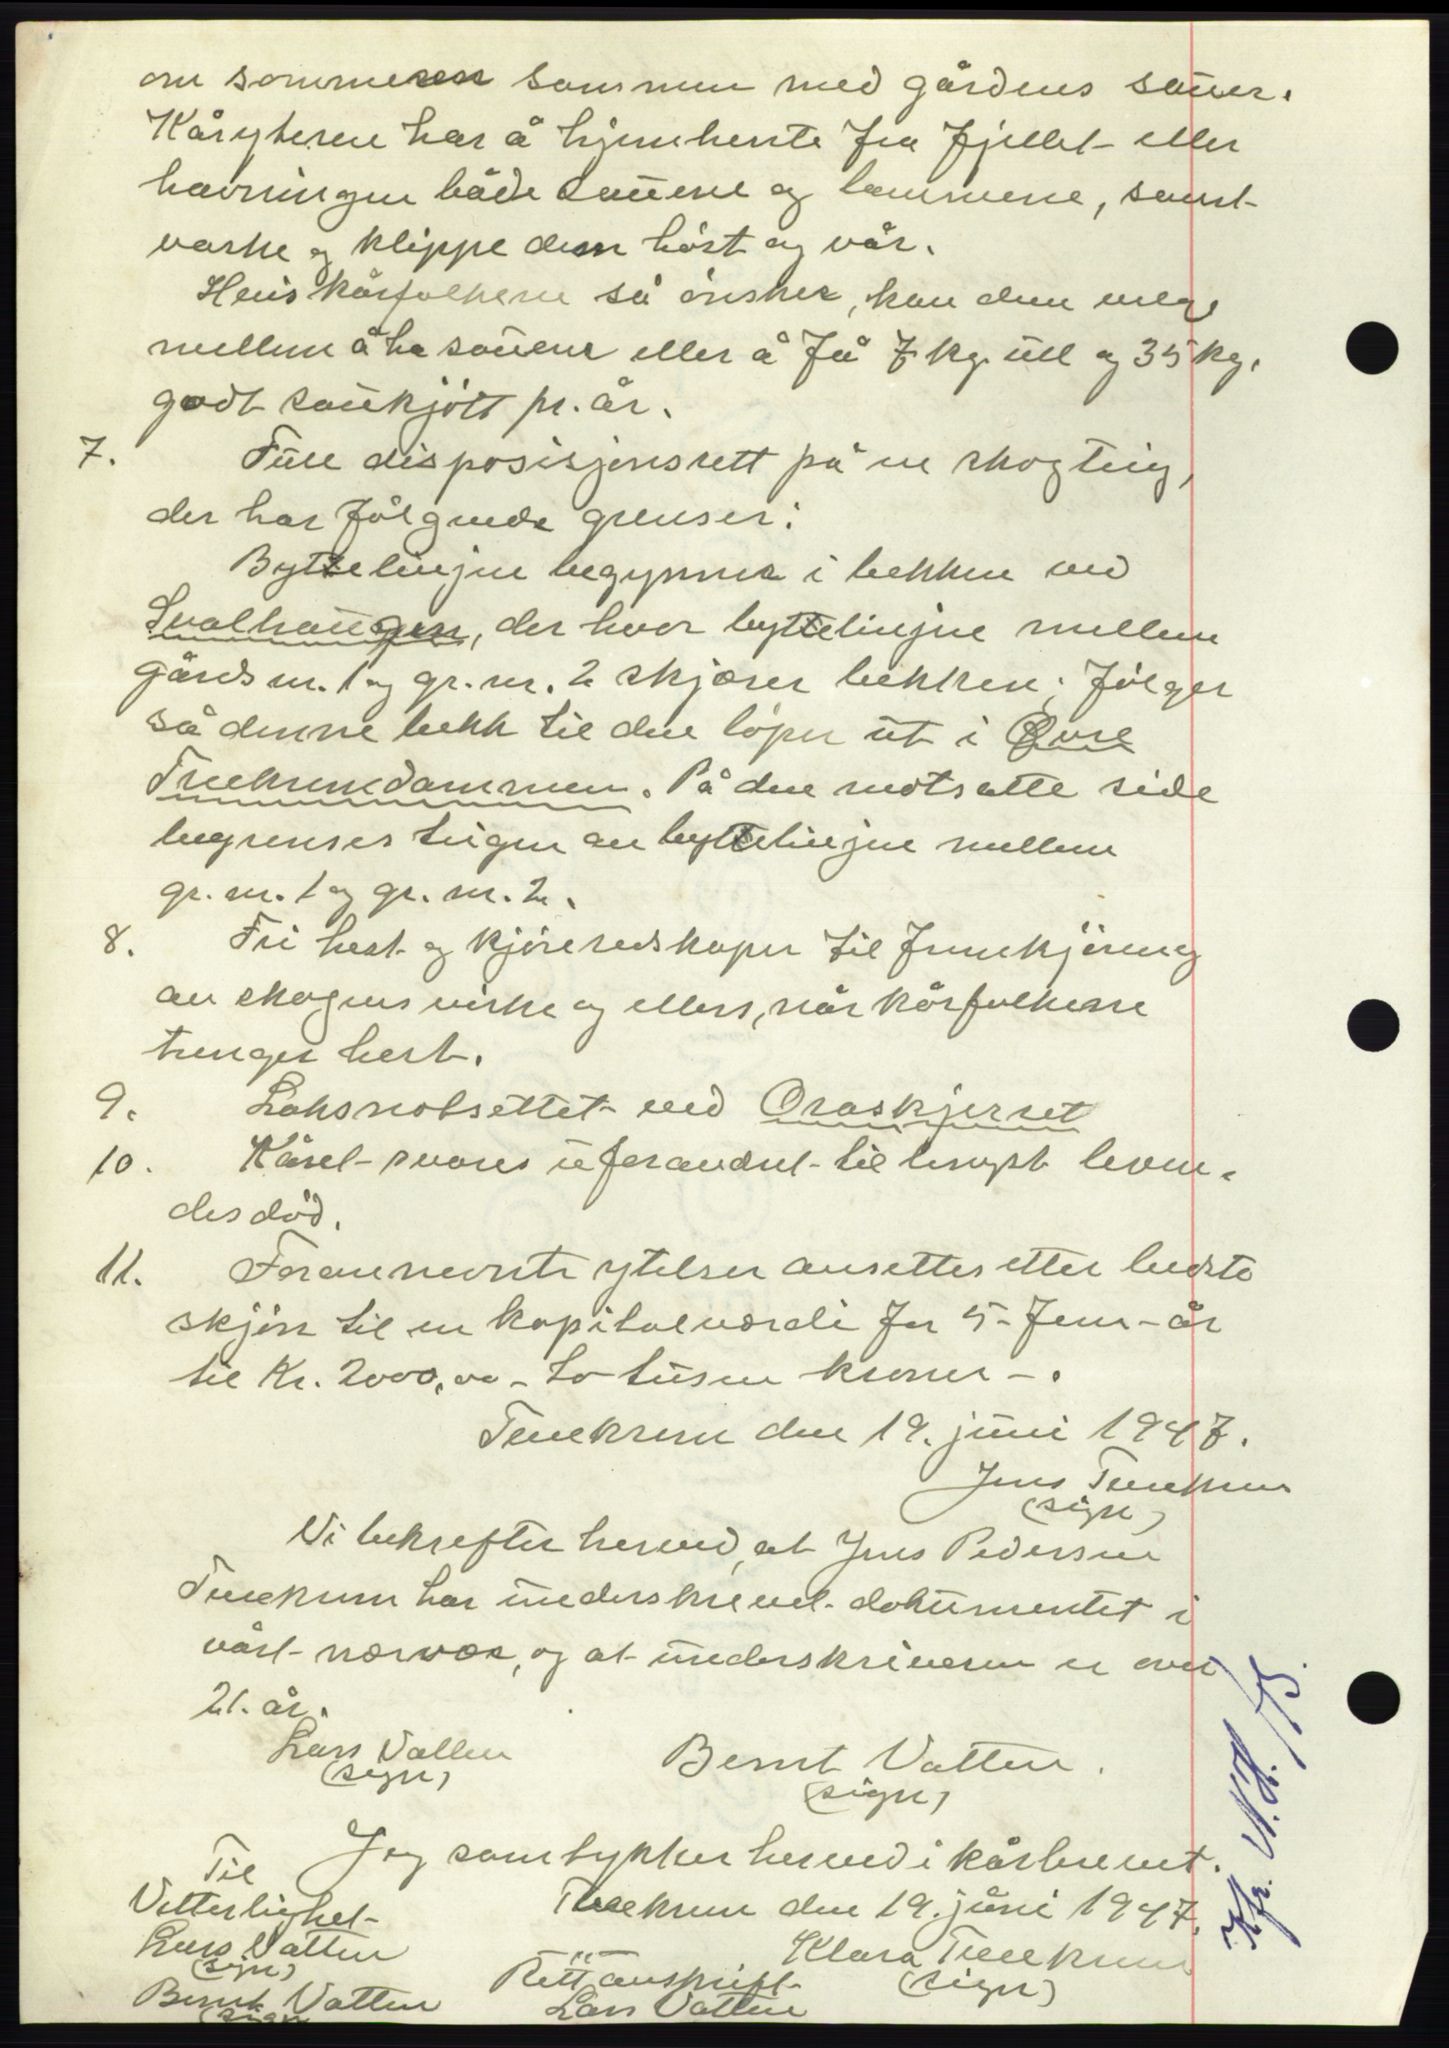 om sommeren sammen med gårdens sauer.
Kåryteren har å hjemhente fra fjellet eller
havningen både sauene og lammene, samt
vaske og klippe dem höst og vår.
Hvis kårfolkene så önsker, kan dem velge
mellem å ha sauene eller å få 7 kg. ull og 35 kg.
godt saukjött pr. år.
7. Full disposisjonsrett på en skogteig,
der har fölgende grenser:
Byttelinjen begynner i bekken ved
Svalhaugen, der hvor byttelinjene mellem
gårds nr. 1 og gr. nr. 2 skjærer bekken; fölger
så denne bekk til den löper ut i Övre
Treekremdammen. På den motsatte side
begrenses teigen av byttelinjene mellem
gr. nr. 1 og gr. nr. 2.
8. Fri hest og kjöreredskaper til fremkjöring
av skogens virke og ellers, når kårfolkene
trenger hest.
9. Laksnotsettet ved Oraskjerret
10. Kåret svares uforandret til lengst leven-
des död.
11. Forannevnte ytelser ansettes etter beste
skjönn til en kapitalverdi for 5 - fem - år
til Kr. 2000,00 - to tusen kroner -.
den 19. juni 1947.
Jens
(sign)
Vi bekrefter herved, at Jens Pedersen
har underskrevet dokumentet i
vårt nærvær, og at underskriveren er over
21. år.
Lars Vatten Bernt Vatten.
(sign) (sign)
Jeg samtykker herved i kårbrevet.
Til den 19. juni 1947.
Vitterlighet Klara
Lars Vatten (sign)
(sign) Rett avskrift
Bernt Vatten Lars Vatten
(sign)
Kfr. N.H. 15.